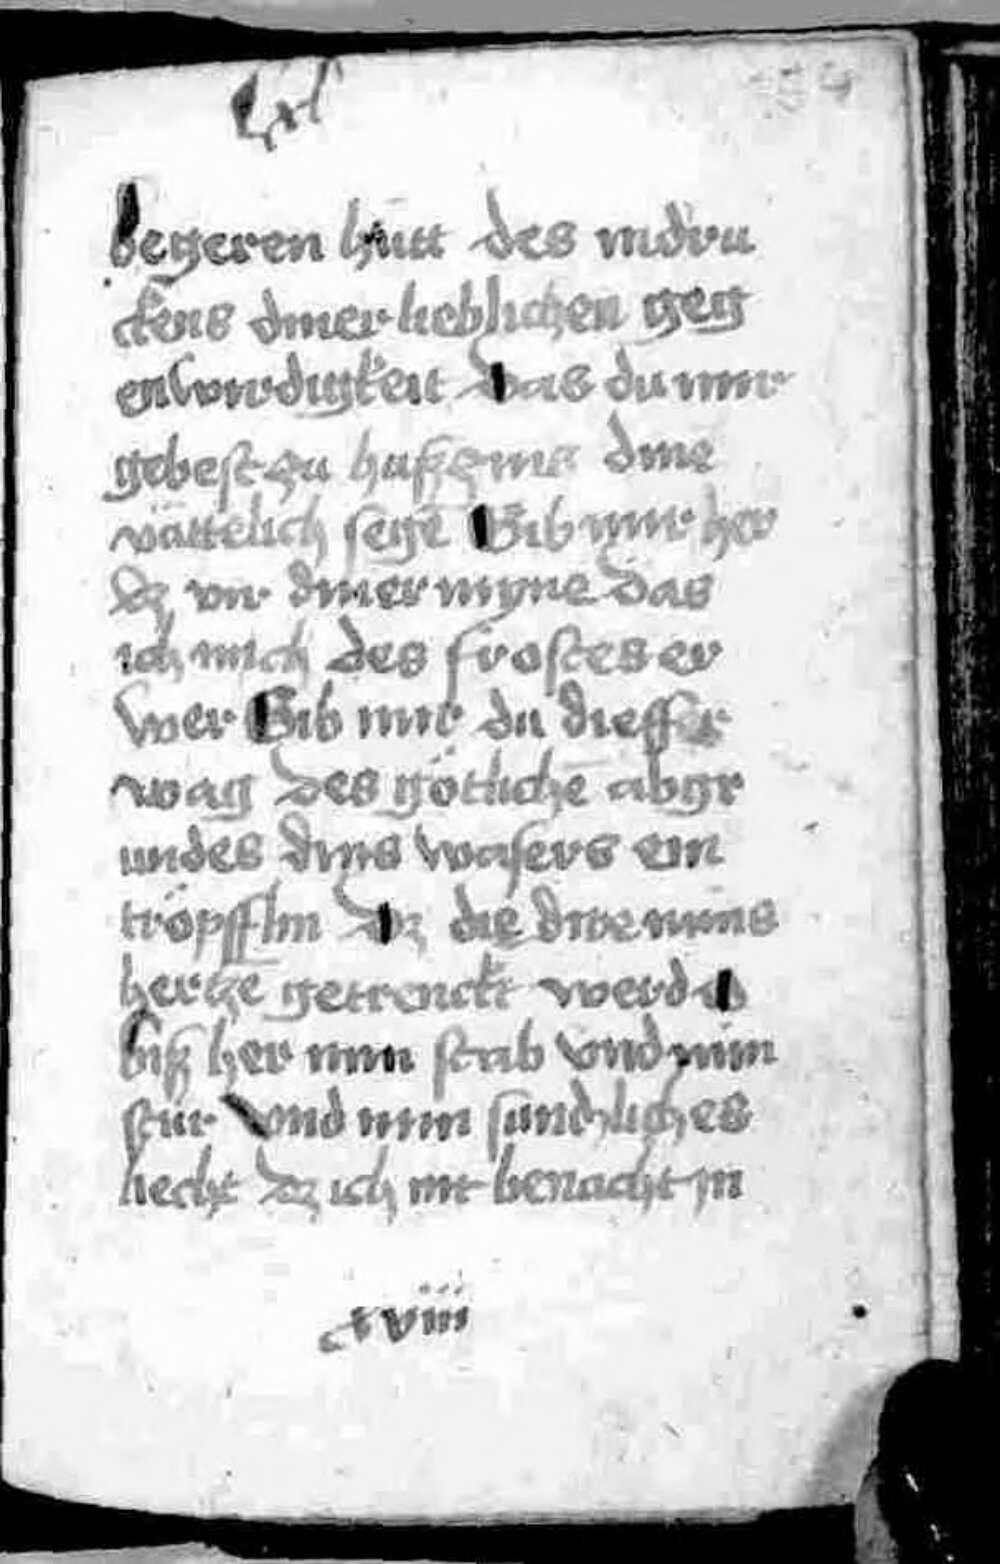 Lxl
begeren hütt des indru
ckens diner lieblichen geg
enwirdigkeit Das du mir
gebest zu huß dine
vätterlich segē Gib mir her
dz vir diner myne das
ich mich des frostes er
wer Gib mir du dieffer
wag des götlichē abgr
undes dins wasers ein
tröpfflin Dz die dirre mins
hertzē getrenckt werd
biß her min stab vnd min
stür Vnd min liches
liecht dz ich nit benacht in
xviii